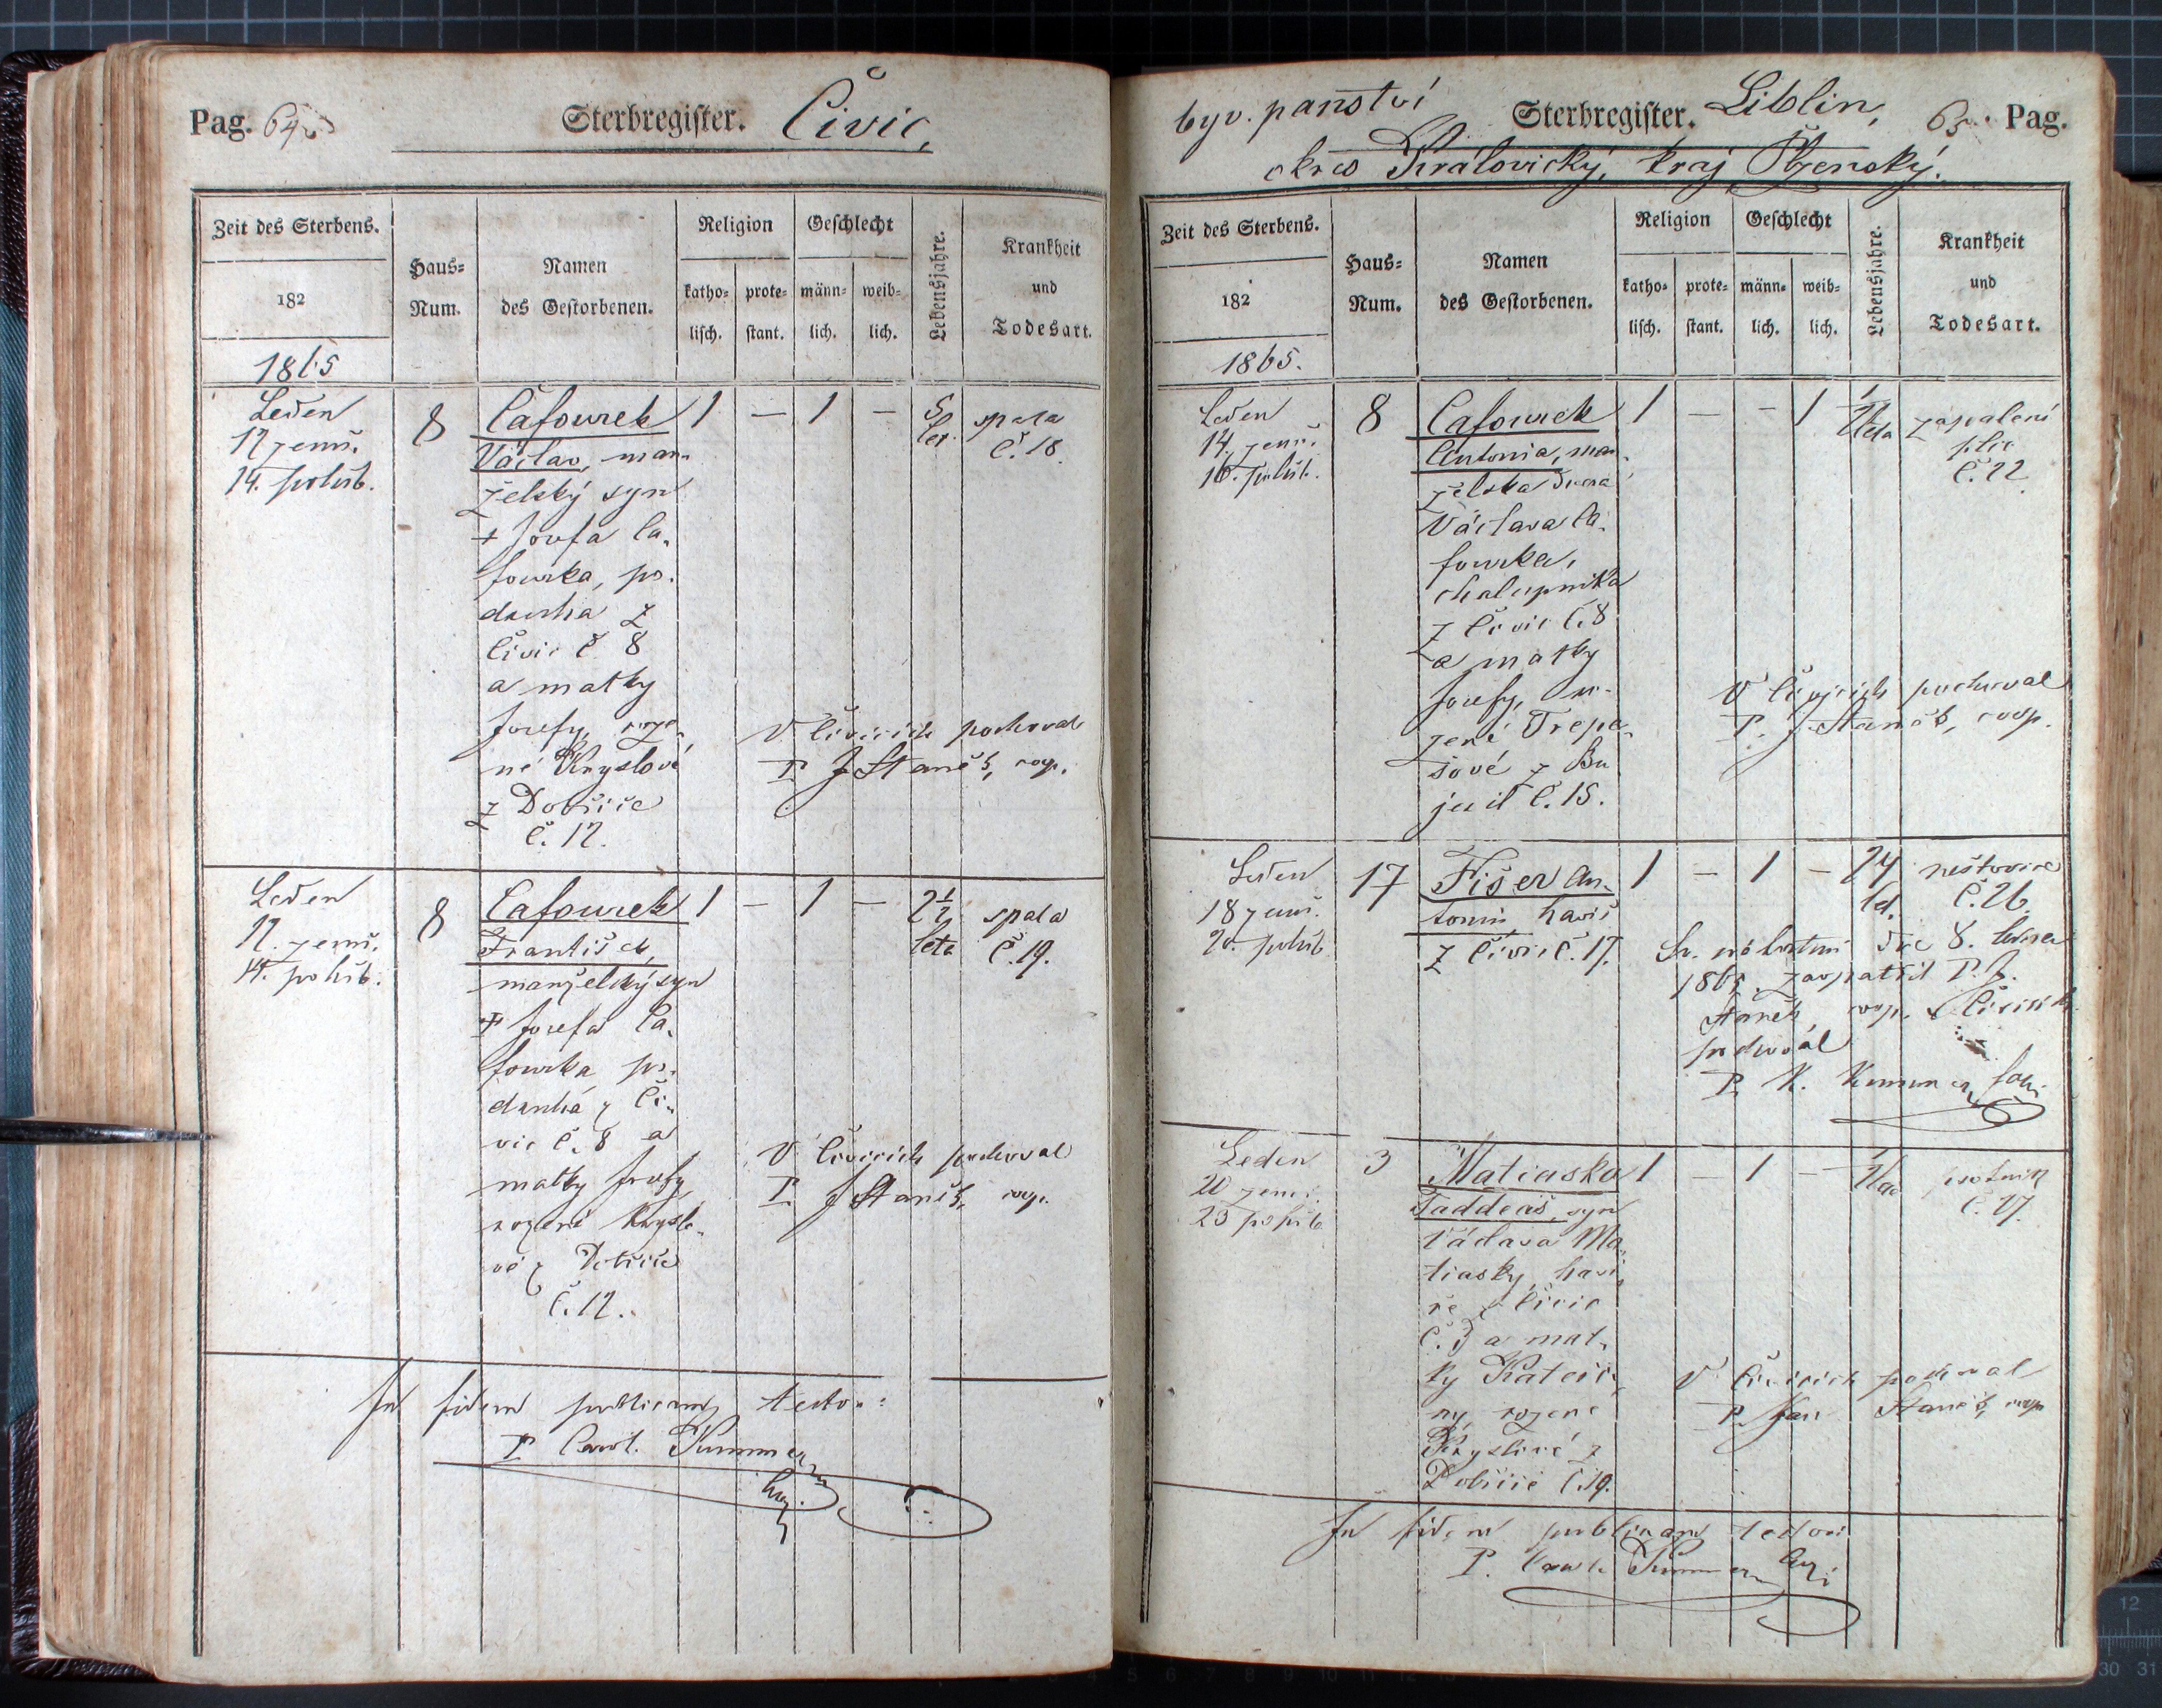 Pag. 64
Sterbregister. Čivic,
Zeit des Sterbens.
Haus-
Num.
Namen
des Gestorbenen.
Religion
Geschlecht
katho-
lisch.
prote-
stant.
männ-
lich.
weib-
lich.
Lebensjahre.
Krankheit
und
Todesart.
182
1865
Leden
12 zemř.
14. pohřb.
8
Cafourek
Václav, man-
želský syn
+ Josefa Ca-
fourka, po-
druha z
Čivic č 8
a matky
Josefy, roze-
né Kryslové
z Dobříče
č. 12.
1 — 1 —
5
let.
spala
č. 18.
V Čivicích pochoval
P. J. Staněk, coop.
Leden
12. zemř.
14. pohřb.
8
Cafourek
František,
manželský syn
+ Josefa Ca-
fourka po-
druha z Či-
vic č. 8 a
matky Josefy
rozené Kryslo-
vé z Dobříče
č. 12.
1 — 1 —
2½
leta
spala
č. 19.
V Čivicích pochoval
P. J. Staněk, coop.
In fidem publicam testor:
P. Carol. Kummer
byv. panství Sterbregister. Liblin, 65. Pag.
okres Královický, kraj Plzenský.
Zeit des Sterbens.
Haus-
Num.
Namen
des Gestorbenen.
Religion
Geschlecht
katho-
lisch.
prote-
stant.
männ-
lich.
weib-
lich.
Lebensjahre.
Krankheit
und
Todesart.
182
1865.
Leden
14. zemř.
16. pohřb.
8
Cafourek
Antonia, man-
želska dcera
Václava Ca-
fourka,
chalupnika
z Čivic č. 8
a matky
Josefy, ro-
zené Trepe-
šové z Bu
jesil č. 15.
1 — - 1
½
leta
zapalení
plic
č. 22.
V Čivicích pochoval
P. J. Staněk, coop.
Leden
18 zemř.
20. pohřb
17
Fišer An-
tonin haviř
z Čivic č. 17.
1 — 1 —
24
let.
neštovice
č. 26.
Sv. svátostmi dne 8. ledna
1865. zaopatřil P. J.
Staněk, coop. v Čivicích
pochoval
P. K. Kummer
Leden
20 zemř.
23 pohřb
3
Matiasko
Taddeáš, syn
Václava Ma-
tiasky, haví-
ře z Čivic
č. 3 a mat-
ky Kateři-
ny, rozené
Kryslové z
Dobříče č. 19.
1 — 1 —
psotník
č. 27.
V Čivicích pochoval
P. Jan Staněk, coop
In fidem publicam testor:
P. Carol. Kummer
12
30 31